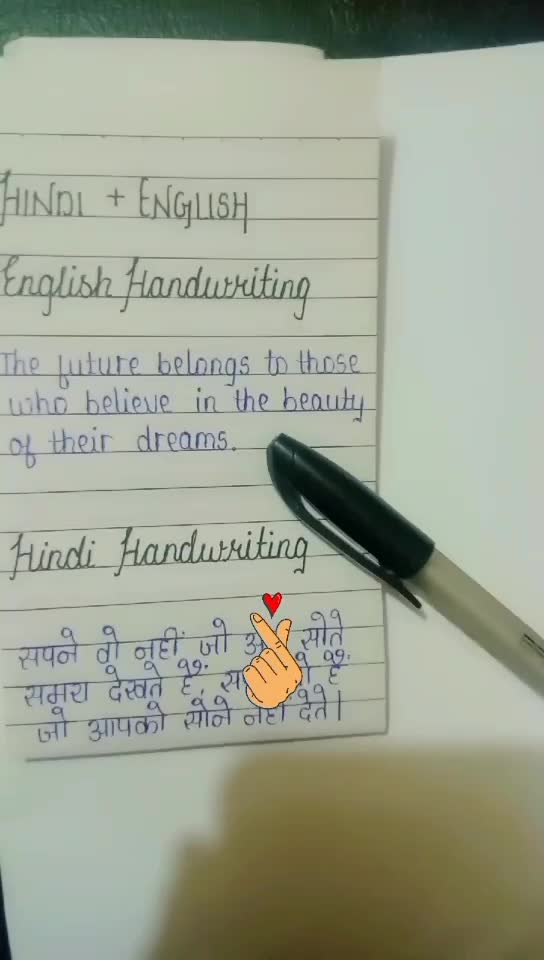 HINDI + ENGLISH
English Handwriting
The future belongs to those
who believe in the beauty
of their dreams.
Hindi Handwriting
सपने वो नहीं जो सोते
समय देखते हैं, हैं
जो आपको सोने नहीं देते।